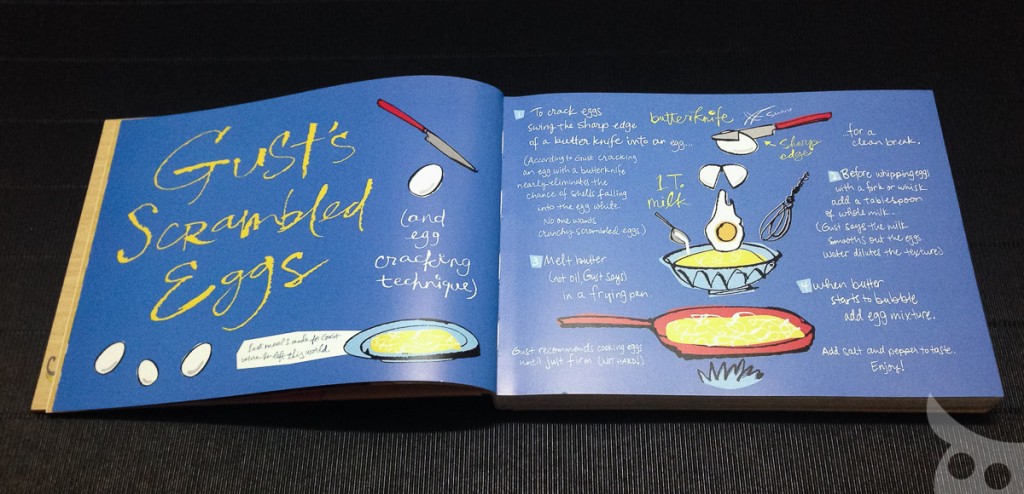 Gust's
Scrambled
Eggs
(and
egg
cracking
technique)
Last meal I made for Gust
before he left this world.
1 To crack eggs
swing the sharp edge
of a butter knife into an egg...
(According to Gust cracking
an egg with a butterknife
nearly eliminates the
chance of shells falling
into the egg white.
No one wants
crunchy scrambled eggs.)
butterknife
sharp
edge
for a
clean break.
1 T.
milk
2 Before whipping eggs
with a fork or whisk
add a tablespoon
of whole milk..
(Gust says the milk
smooths out the eggs
water dilutes the texture)
3 Melt butter
(not oil, Gust says)
in a frying pan.
4 When butter
starts to bubble
add egg mixture.
Gust recommends cooking eggs
until just firm (NOT HARD!)
Add salt and pepper to taste.
Enjoy!